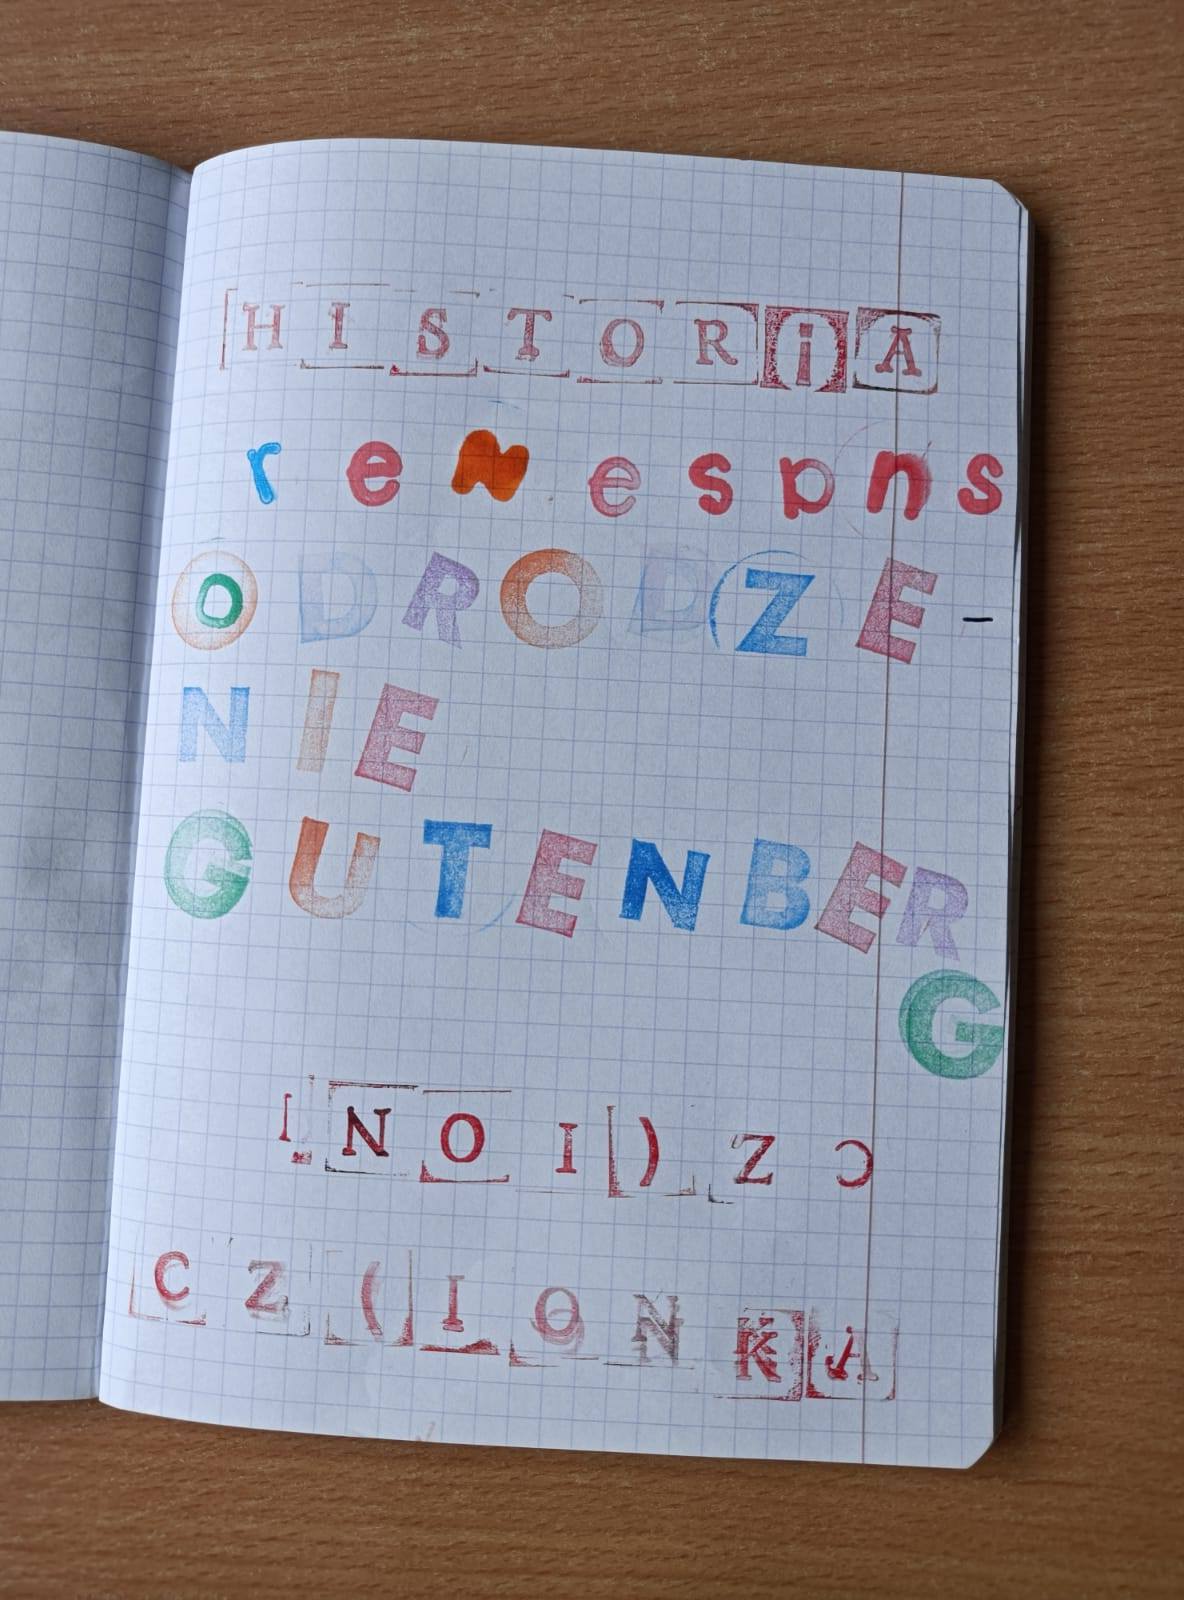 HISTORiA
reNesans
ODRODZE-
NIE
GUTENBER
G
INOI)ZC
CZ(IONKA